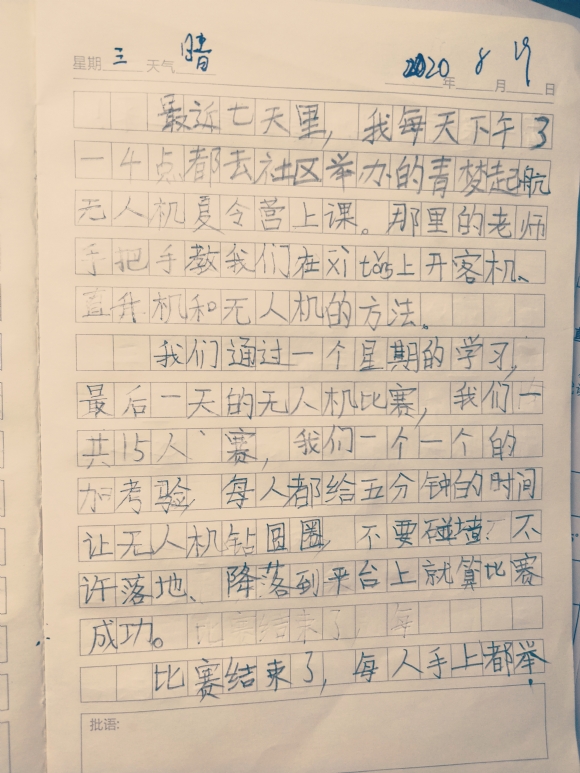 星期三 天气晴 2020年8月19日
最近七天里，我每天下午3
一4点都去社区举办的青梦起航
无人机夏令营上课。那里的老师
手把手教我们在xì tǒng上开客机、
直升机和无人机的方法。
我们通过一个星期的学习，
最后一天的无人机比赛，我们一
共15人、赛，我们一个一个的
加考验，每人都给五分钟的时间
让无人机钻圆圈，不要碰墙．不
许落地、降落到平台上就算比赛
成功。比赛结束了，每
比赛结束了，每人手上都举．
批语: